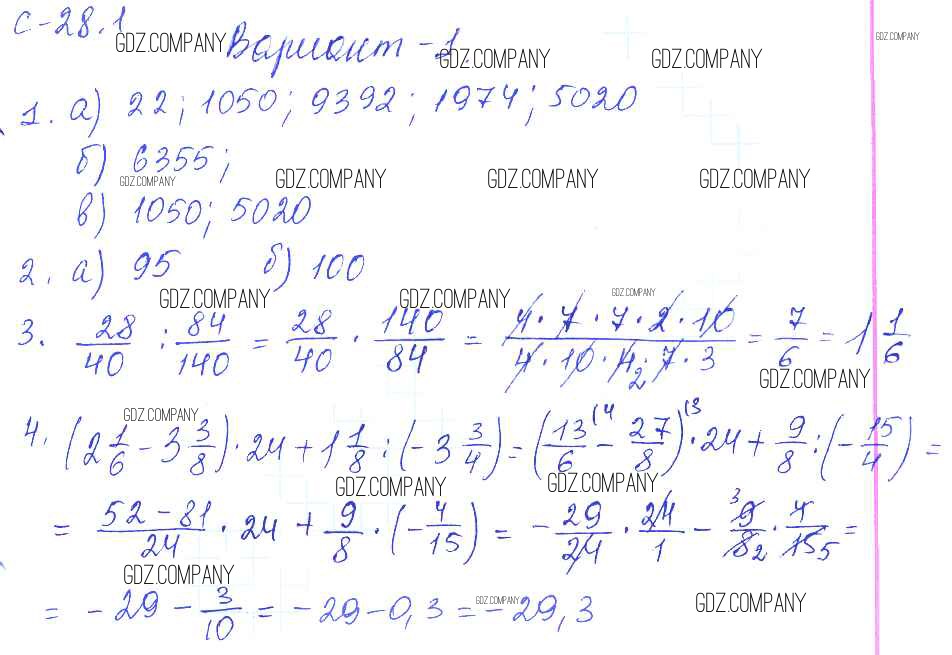 С-28.1
GDZ.COMPANY Вариант-1. GDZ.COMPANY GDZ.COMPANY GDZ.COMPANY
1. а) 22; 1050; 9392; 1974; 5020
б) 6355;
GDZ.COMPANY GDZ.COMPANY GDZ.COMPANY GDZ.COMPANY
в) 1050; 5020
2. а) 95 б) 100
GDZ.COMPANY GDZ.COMPANY GDZ.COMPANY
3. 28/40 : 84/140 = 28/40 · 140/84 = 4·7·7·2·10/4·10·4₂·7·3 = 7/6 = 1 1/6
GDZ.COMPANY GDZ.COMPANY
4. (2 1/6 - 3 3/8) · 24 + 1 1/8 : (-3 3/4) = (13/6 (4 - 27/8) (3 · 24 + 9/8 : (-15/4) =
GDZ.COMPANY GDZ.COMPANY
= 52-81/24 · 24 + 9/8 · (-4/15) = -29/24 · 24/1 - ³9/8₂ · 4/15₅ =
GDZ.COMPANY
= -29 - 3/10 = -29-0,3 = -29,3
GDZ.COMPANY GDZ.COMPANY